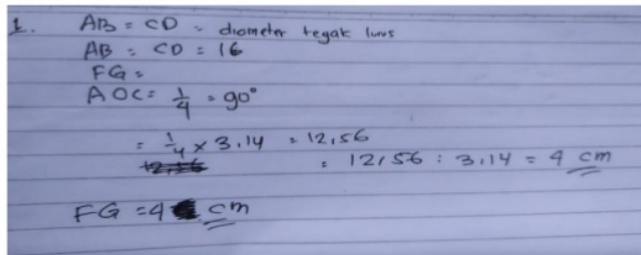 1. AB = CD = diometer tegak lurus
AB = CD = 16
FG =
AOC = 1/4 = 90°
= 1/4 x 3.14 = 12,56
= 12,56 : 3,14 = 4 cm
FG = 4 cm